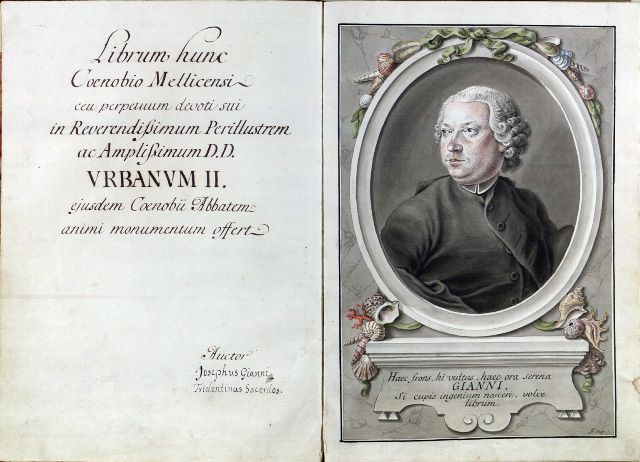 Librum hunc
Cœnobio Mellicensi
ceu perpetuum devoti sui
in Reverendißimum Perillustrem
ac Amplißimum D.D.
VRBANVM II.
ejusdem Cœnobii Abbatem
animi monumentum offert
Auctor
Josephus Gianni
Tridentinus Sacerdos.
Haec frons, hi vultus, haec ora serena
GIANNI,
Si cupis ingenium noscere, volve
librum.